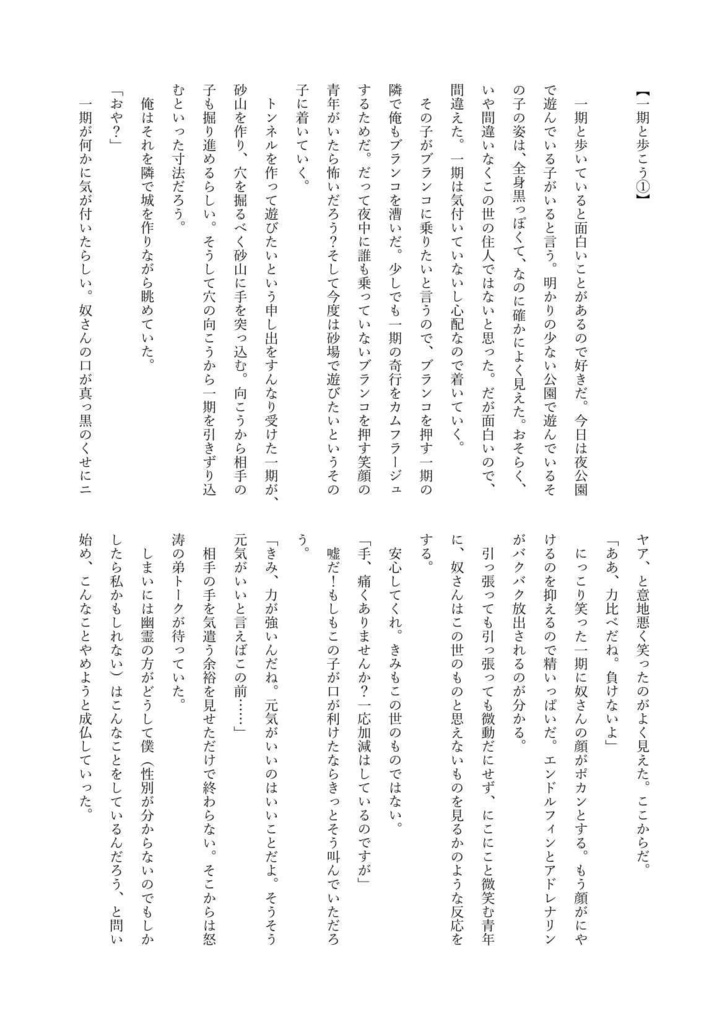 【一期と歩こう①】
　一期と歩いていると面白いことがあるので好きだ。今日は夜公園
で遊んでいる子がいると言う。明かりの少ない公園で遊んでいるそ
の子の姿は、全身黒っぽくて、なのに確かによく見えた。おそらく、
いや間違いなくこの世の住人ではないと思った。だが面白いので、
間違えた。一期は気付いていないし心配なので着いていく。
　その子がブランコに乗りたいと言うので、ブランコを押す一期の
隣で俺もブランコを漕いだ。少しでも一期の奇行をカムフラージュ
するためだ。だって夜中に誰も乗っていないブランコを押す笑顔の
青年がいたら怖いだろう？そして今度は砂場で遊びたいというその
子に着いていく。
　トンネルを作って遊びたいという申し出をすんなり受けた一期が、
砂山を作り、穴を掘るべく砂山に手を突っ込む。向こうから相手の
子も掘り進めるらしい。そうして穴の向こうから一期を引きずり込
むといった寸法だろう。
　俺はそれを隣で城を作りながら眺めていた。
「おや？」
　一期が何かに気が付いたらしい。奴さんの口が真っ黒のくせにニ
ヤア、と意地悪く笑ったのがよく見えた。ここからだ。
「ああ、力比べだね。負けないよ」
　にっこり笑った一期に奴さんの顔がポカンとする。もう顔がにや
けるのを抑えるので精いっぱいだ。エンドルフィンとアドレナリン
がバクバク放出されるのが分かる。
　引っ張っても引っ張っても微動だにせず、にこにこと微笑む青年
に、奴さんはこの世のものと思えないものを見るかのような反応を
する。
　安心してくれ。きみもこの世のものではない。
「手、痛くありませんか？一応加減はしているのですが」
　嘘だ！もしもこの子が口が利けたならきっとそう叫んでいただろ
う。
「きみ、力が強いんだね。元気がいいのはいいことだよ。そうそう
元気がいいと言えばこの前……」
　相手の手を気遣う余裕を見せただけで終わらない。そこからは怒
涛の弟トークが待っていた。
　しまいには幽霊の方がどうして僕（性別が分からないのでもしか
したら私かもしれない）はこんなことをしているんだろう、と問い
始め、こんなことやめようと成仏していった。